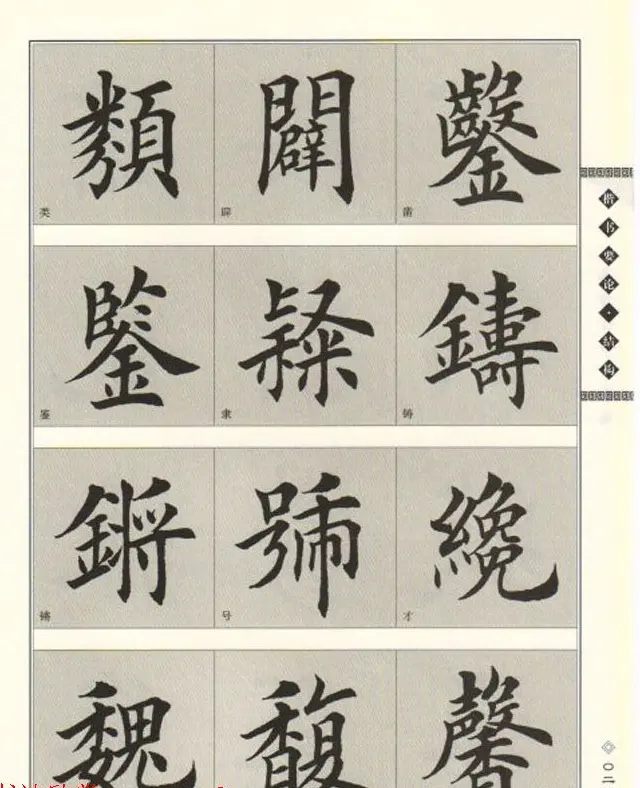 類 闢 鑿
类 辟 凿
鑒 隸 鑄
鉴 隶 铸
鏘 號 纔
锵 号 才
魏 馥 馨
楷书要论·结构
〇二